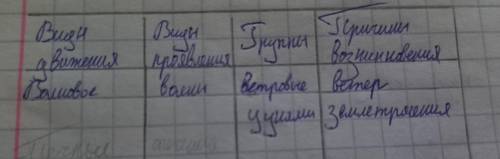 Виды Виды Группы Причины
движения проявления возникновения
Волновое волны Ветровые ветер
цунами землетрясения